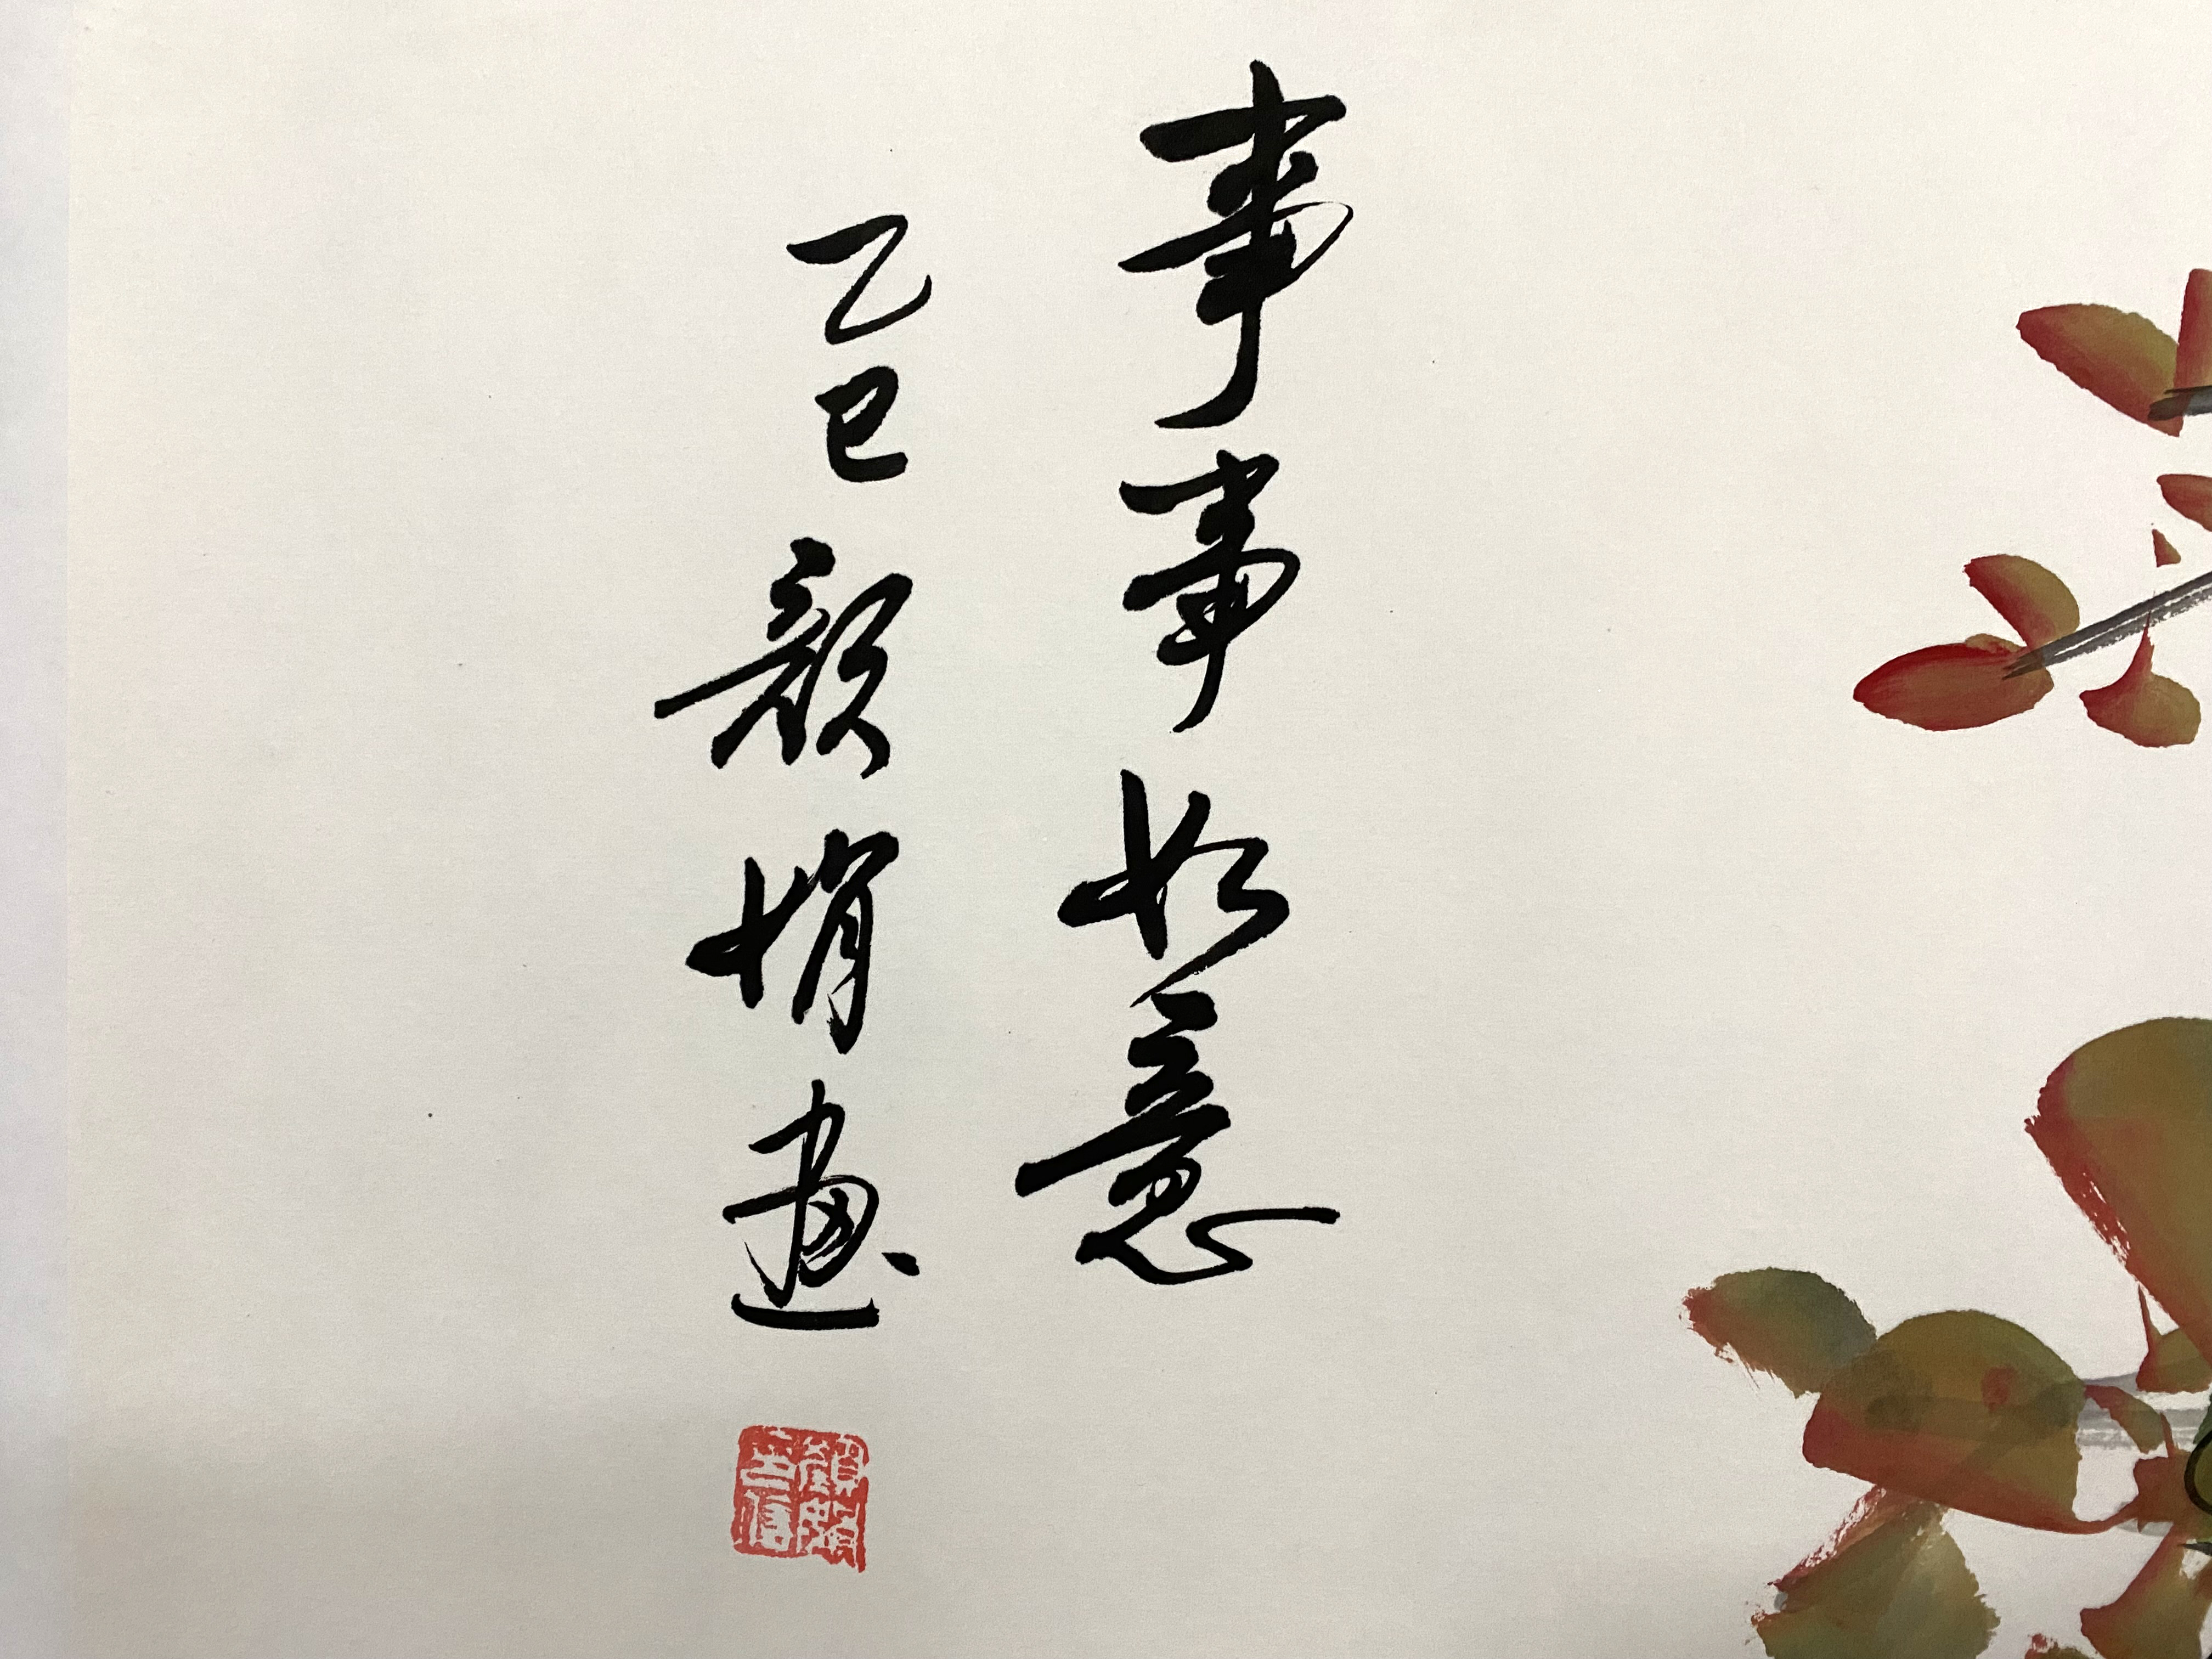 事事如意
乙巳颜娟画